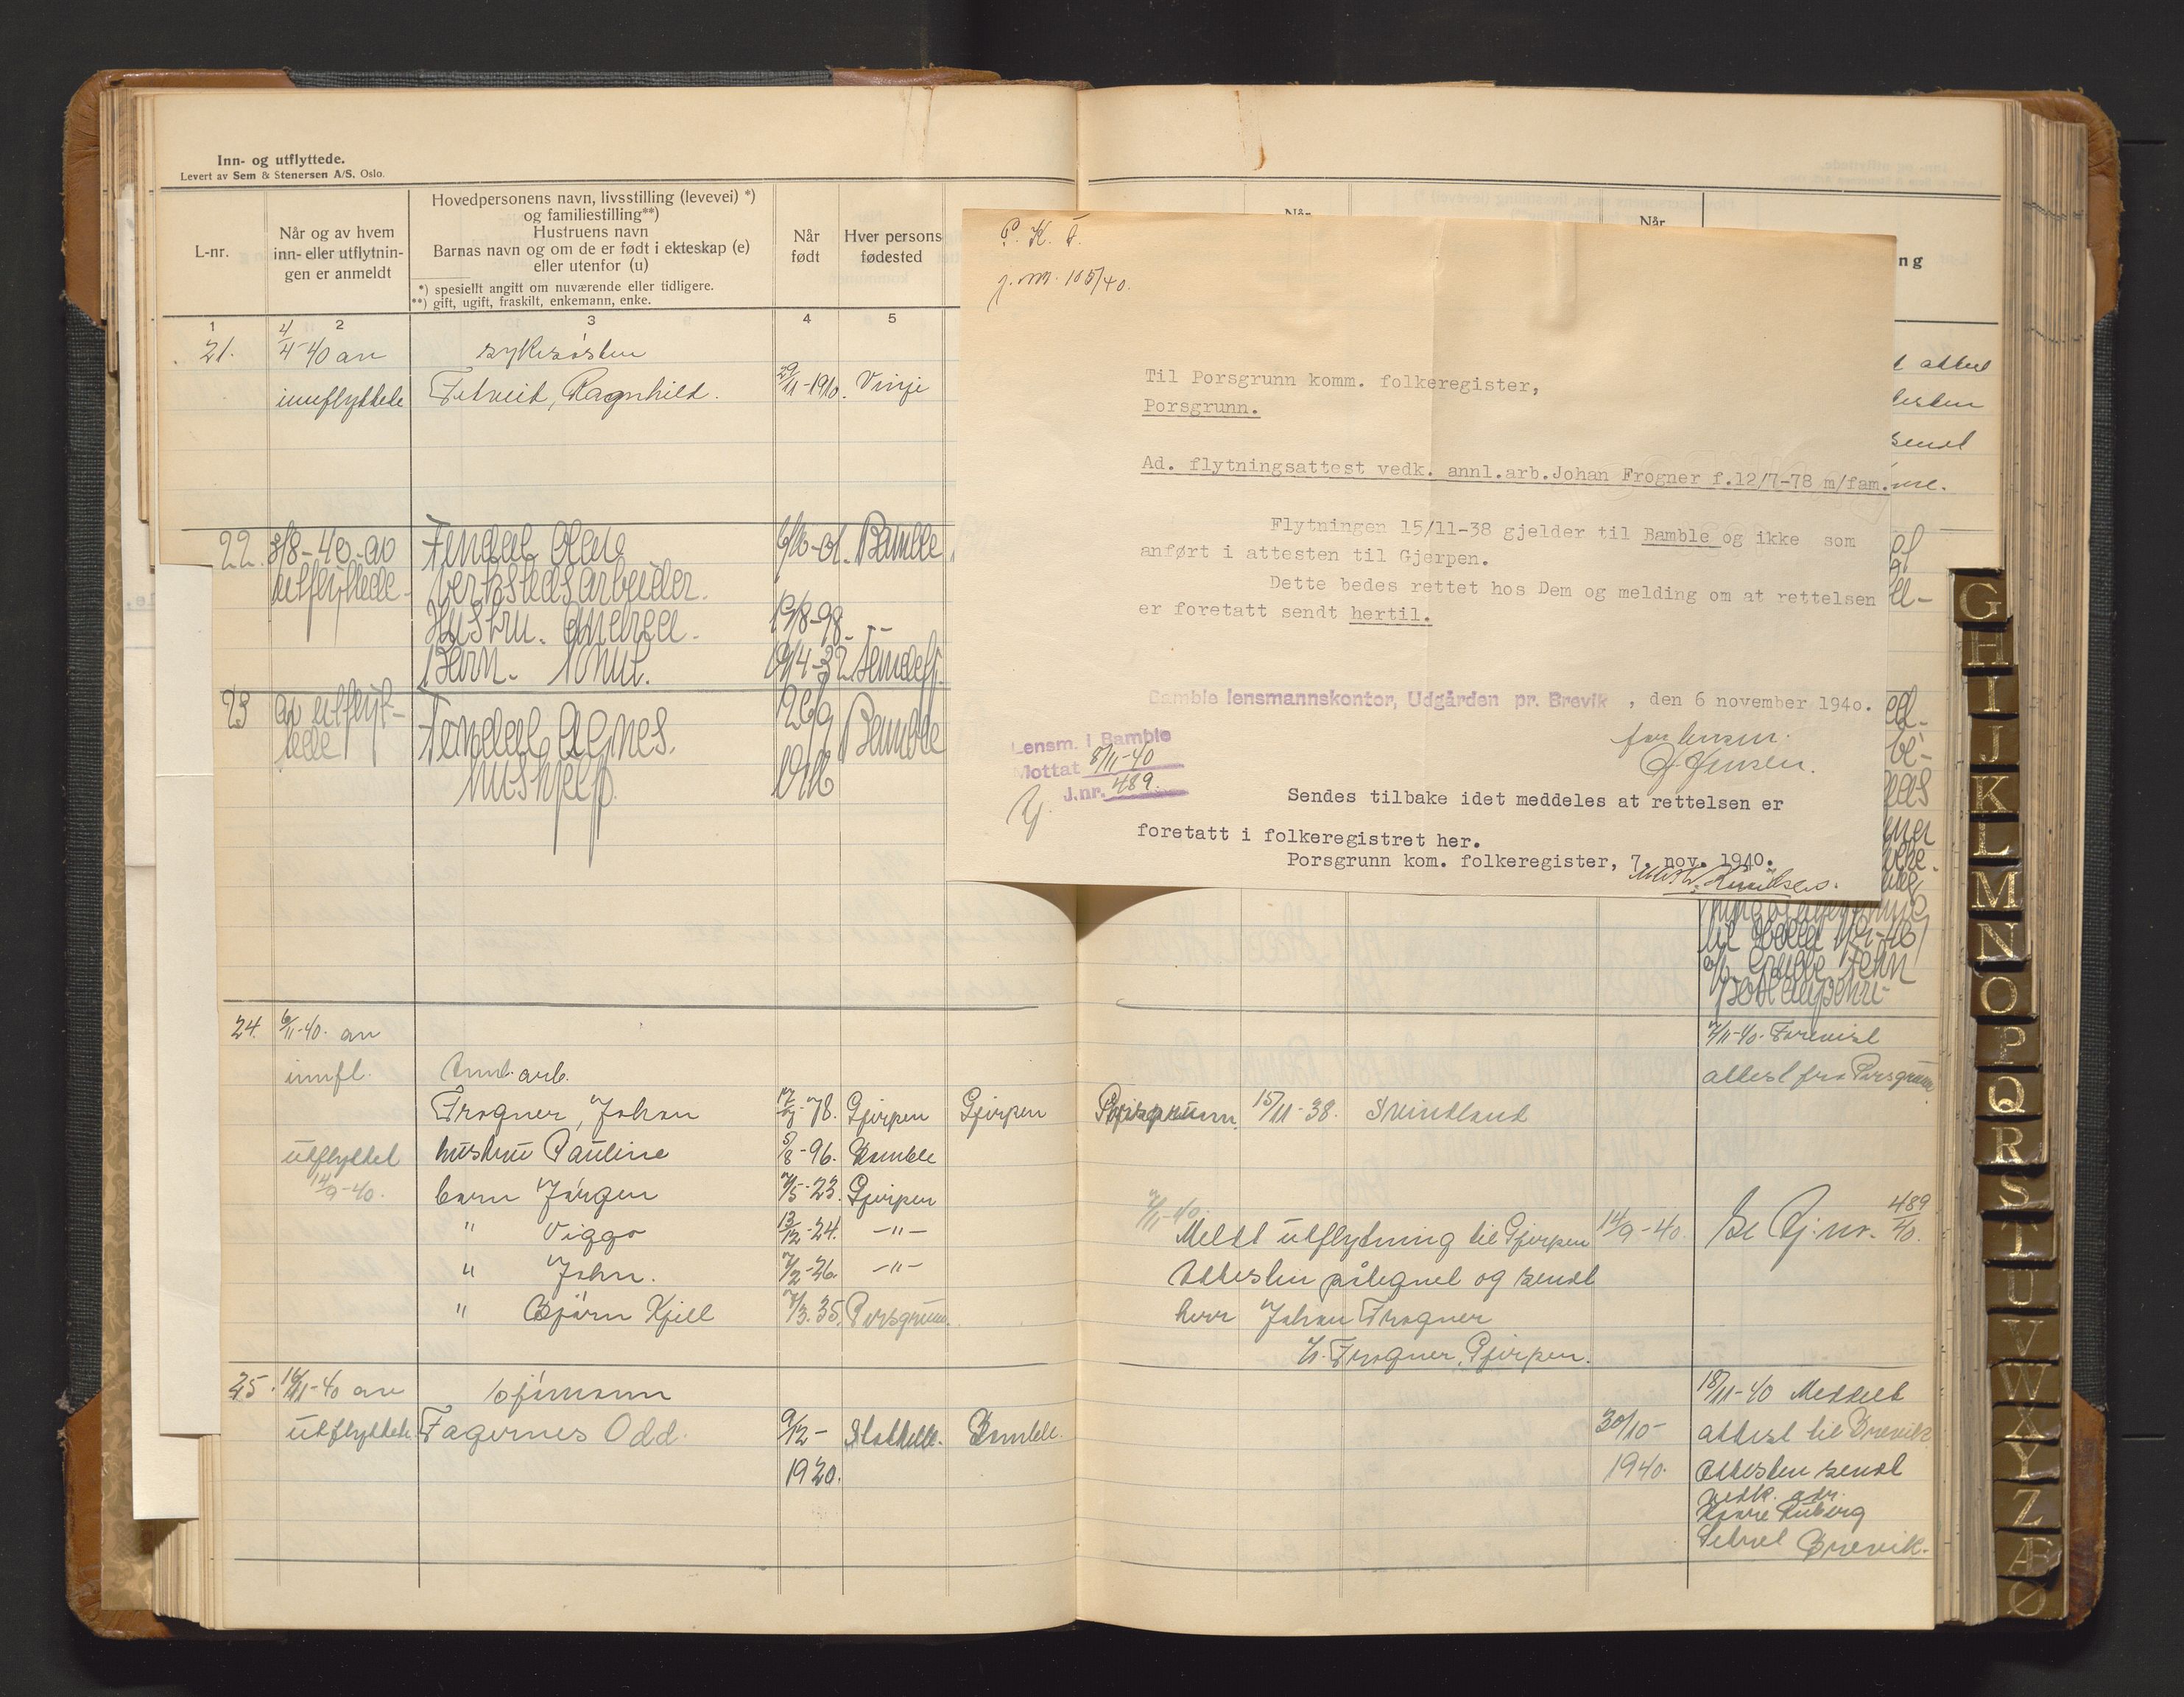 Inn- og utflyttede.
Levert av Sem & Stenersen A/S. Oslo.
L-nr.
Når og av hvem
inn- eller utflytnin-
gen er anmeldt
Hovedpersonens navn, livsstilling (levevei) *)
og familiestilling**)
Hustruens navn
Barnas navn og om de er født i ekteskap (e)
eller utenfor (u)
*) spesiellt angitt om nuværende eller tidligere.
**) gift, ugift, fraskilt, enkemann, enke.
Når
født
Hver persons
fødested
1 2 3 4 5
21. 4/4-40 av sykesøster
innflyttede Fetveit, Ragnhild. 29/11-1910. Vinje
22. 3/8-40-av Fendal Olav 6/10-01. Bamble
utflyttede verkstedsarbeider.
Hustru. Andrea. 19/8-98. -"-
Barn. Knut. 19/4-32
23 av utflyt- Fendal Agnes. 26/9 Bamble
tede hushjelp. 1916
24. 6/11-40. av
innfl. Annl. arb.
Frogner, Johan 12/7-78. Gjerpen Gjerpen
utflyttet hustru Pauline 5/8-96. Bamble
14/9-40. barn Jørgen 7/5-23. Gjerpen
" Viggo 13/12-24. -"-
" John. 7/2-26. -"-
" Bjørn Kjell 7/3.35. Porsgrunn.
25. 16/11-40 av sjømann
utflyttede Fagernes Odd. 9/12- Stathelle. Bamble.
1920.
P. K. F.
j. nr. 105/40.
Til Porsgrunn komm. folkeregister,
Porsgrunn.
Ad. flytningsattest vedk. annl.arb.Johan Frogner f.12/7-78 m/fam.
Flytningen 15/11-38 gjelder til Bamble og ikke som
anført i attesten til Gjerpen.
Dette bedes rettet hos Dem og melding om at rettelsen
er foretatt sendt hertil.
Bamble lensmannskontor, Udgården pr. Brevik , den 6 november 1940.
for lensm.
Jensen.
Lensm. i Bamble
Mottat 8/11-40
J.nr. 489.
Sendes tilbake idet meddeles at rettelsen er
foretatt i folkeregistret her.
Porsgrunn kom. folkeregister, 7. nov. 1940.
Knudsen.
Når
Når
ng
7/11-40. Forevist
attest fra Porsgrunn
Porsgrunn. 15/11-38. Svindland
7/11-40.
Meldt utflytning til Gjerpen 14/9-40. Se Pj. nr. 489/40.
Attesten påtegnet og sendt
herr Johan Frogner
Frogner, Gjerpen.
18/11-40 Meddelt
30/10- attest til Brevik
1940. Attesten sendt
vedk. adr.
Brevik.
G
H
I
J
K
L
M
N
O
P
Q
R
S
T
U
V
W
X
Y
Z
Æ
Ø